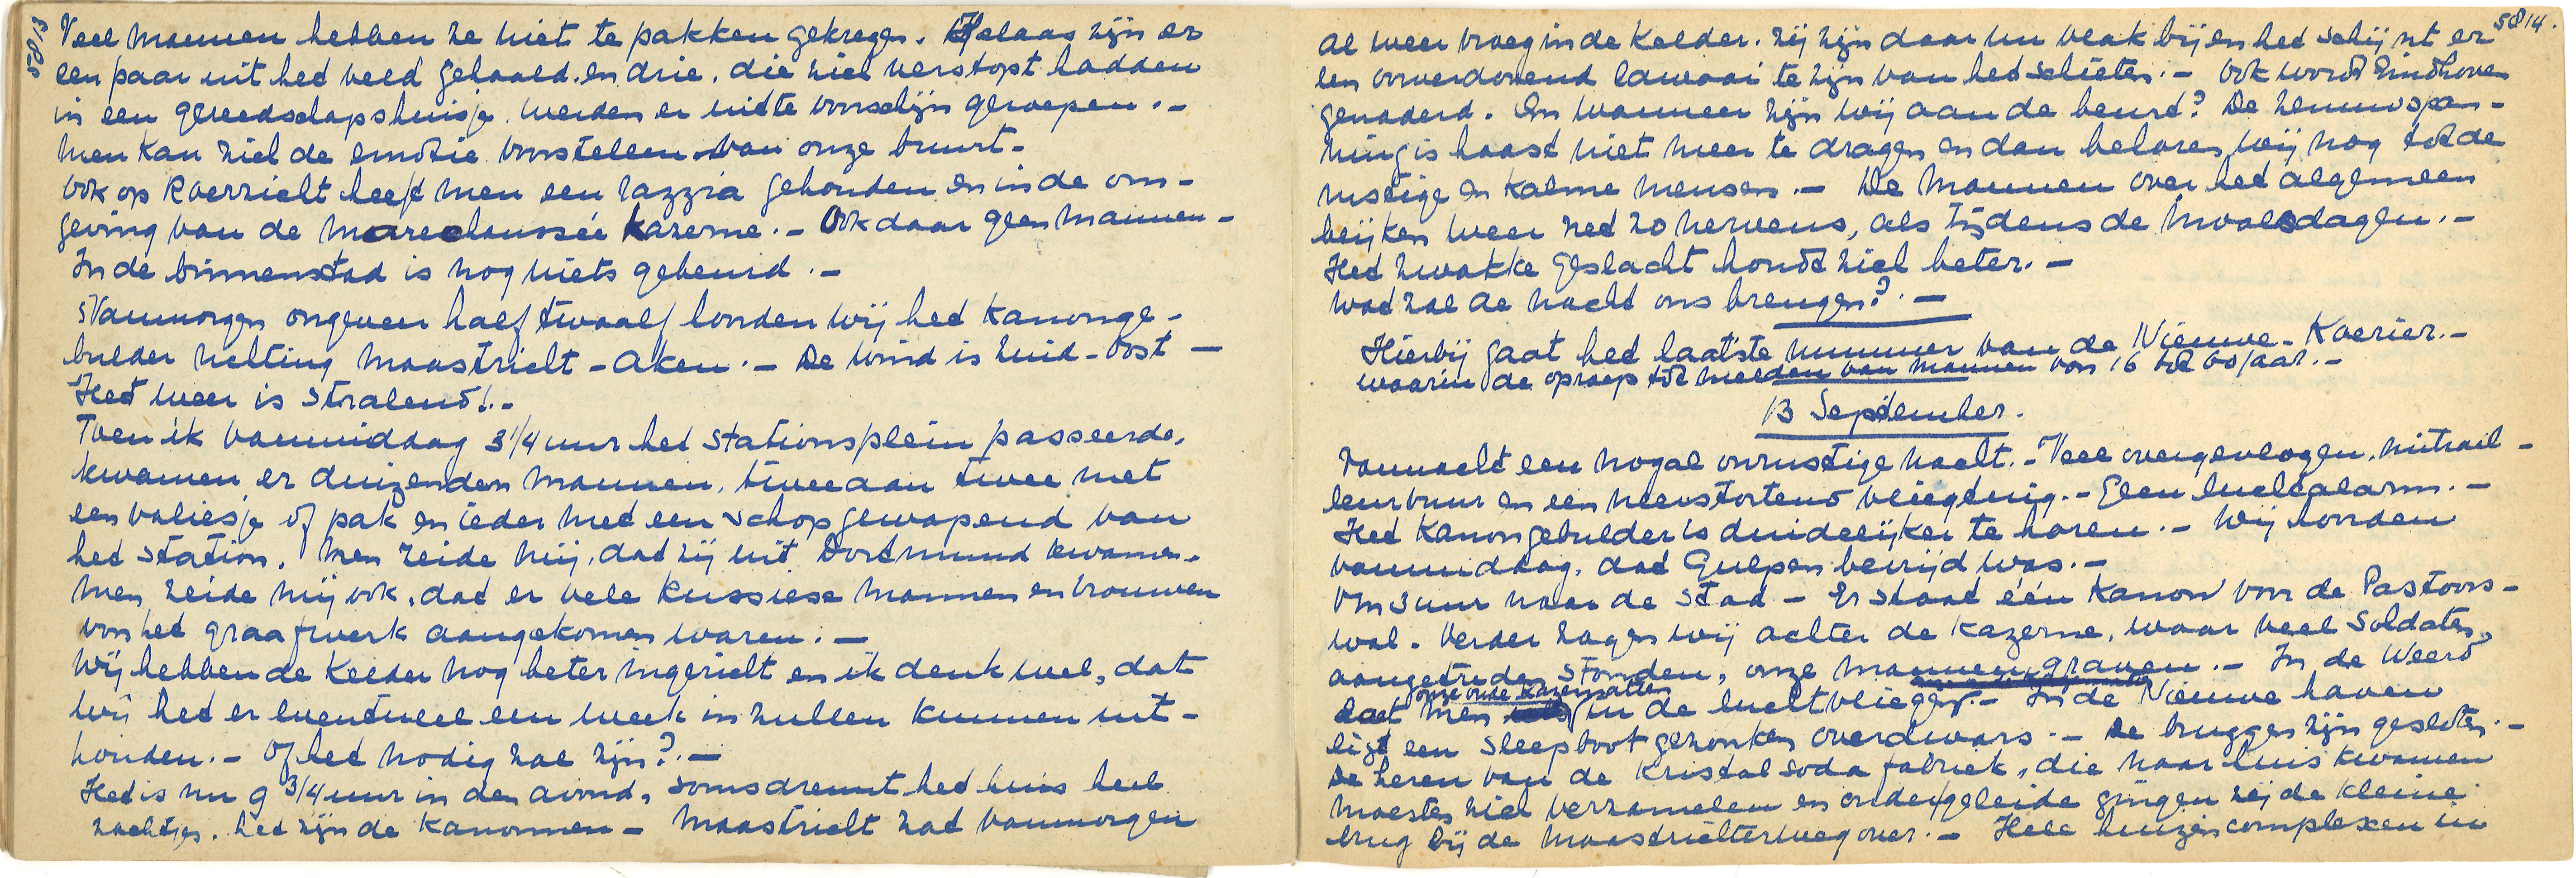 5813
Veel mannen hebben ze niet te pakken gekregen. Helaas zijn er
een paar uit het veld gehaald. en drie, die zich verstopt hadden
in een gereedschapshuisje. werden er uit te voorschijn geroepen. –
Men kan zich de emotie voorstellen van onze buurt –
Ook op Roerzicht heeft men een razzia gehouden en in de om-
geving van de Marechaussée kazerne. – Ook daar geen mannen –
In de binnenstad is nog niets gebeurd. –
Vanmorgen ongeveer half twaalf honden wij het kanonge-
bulder richting Maastricht – Aken. – De wind is Zuid-Oost –
Het weer is stralend!. –
Toen ik vanmiddag 3 1/4 uur het Stationsplein passeerde,
kwamen er duizenden mannen, twee aan twee met
een valiesje of pak en ieder met een schop gewapend van
het station. Men zeide mij, dat zij uit Dortmund kwamen.
Men zeide mij ook, dat er vele Russiese mannen en vrouwen
voor het graafwerk aangekomen waren. –
Wij hebben de Kelder nog beter ingericht en ik denk wel, dat
wij het er eventueel een week in zullen kunnen uit-
houden. – Of het nodig zal zijn?. –
Het is nu 9 3/4 uur in den avond, soms dreunt het huis heel
zachtjes, het zijn de kanonnen – Maastricht zat vanmorgen
5814.
al weer vroeg in de Kelder. Zij zijn daar nu vlak bij en het schijnt er
een oorverdovend lawaai te zijn van het schieten. – Ook wordt Eindhoven
genaderd. En wanneer zijn wij aan de beurt? De zenuwspan-
ning is haast niet meer te dragen en dan behoren wij nog tot de
rustige en kalme mensen. – De Mannen over het algemeen
blijken weer net zo nerveus, als tijdens de invalsdagen. –
Het zwakke geslacht houdt zich beter. –
Wat zal de nacht ons brengen?. –
Hierbij gaat het laatste nummer van de Nieuwe-Koerier. –
waarin de oproep tot melden van mannen van 16 tot 60 jaar. –
13 September.
Vannacht een nogal onrustige nacht. – Veel overgevlogen, mitrail-
leurvuur en een neerstortend vliegtuig. – Geen luchtalarm. –
Het Kanongebulder is duidelijker te horen. – Wij horden
vanmiddag, dat Gulpen bevrijd was. –
Om 3 uur naar de Stad – Er staat één Kanon voor de Pastoors-
wal. Verder zagen wij achter de kazerne, waar veel Soldaten
aangetreden stonden, onze mannen graven. – In de Weerd
laat men onze oude kazematten in de lucht vliegen. – In de Nieuwe haven
ligt een sleepboot gezonken overdwars. – De bruggen zijn gesloten. –
De heren van de Kristal Soda fabriek, die naar huis kwamen
moesten zich verzamelen en onder geleide gingen zij de kleine
brug bij de Maastrichterweg over. – Hele huizencomplexen in